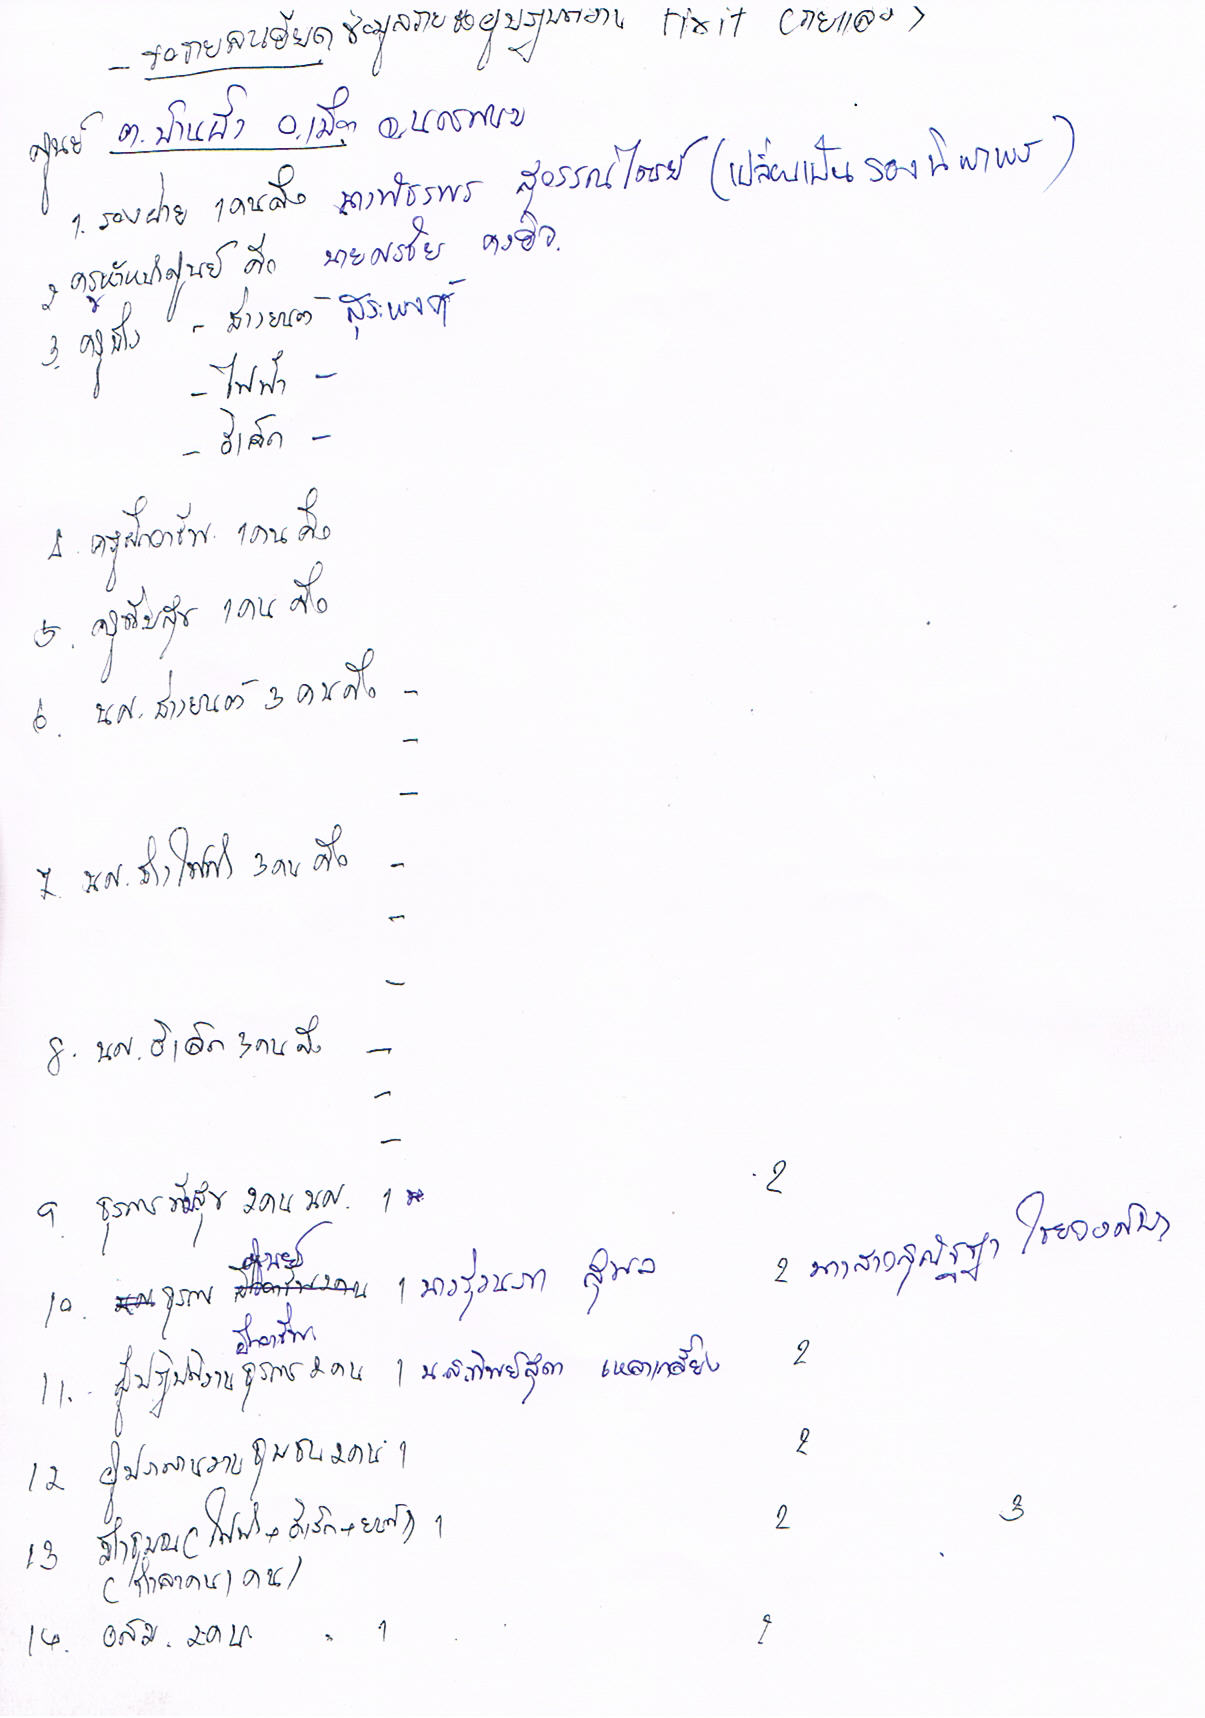 - ขอรายละเอียด ข้อมูลรายชื่อผู้ปฏิบัติงาน fixit (รายแรก)
ศูนย์ ต.บ้านผึ้ง อ.เมือง จ.นครพนม
1. รองฝ่าย 1 คนคือ นางพัชรพร สุวรรณไตรย์ (เปลี่ยนเป็น รองนิพาพร)
2. ครูหัวหน้าศูนย์ คือ นายพรชัย
3. ครูช่าง - ช่างยนต์ สุระพงษ์
- ไฟฟ้า -
- อิเล็ก -
4. ครูฝึกอาชีพ 1 คน คือ
5. ครูพัสดุ 1 คน คือ
6. นศ. ช่างยนต์ 3 คนคือ -
-
-
7. นศ. ช่างไฟฟ้า 3 คน คือ -
-
-
8. นศ. อิเล็ก 3 คน คือ -
-
-
9. ธุรการ พัสดุ 2 คน นศ. 1 2
ศูนย์
10. ธุรการ 1 2 นางสาว
ฝึกอาชีพ
11. ผู้ปฏิบัติงานธุรการ 2 คน 1 น.ส.ทิพย์สุดา เหลาเกลี้ยง 2
12 ผู้ประสานงานชุมชน 2 คน 1 2
13 ช่างชุมชน (ไฟฟ้า + อิเล็ก + ยนต์) 1 2 3
(ช่างละคน 1 คน)
14. อสม. 2 คน 1 2